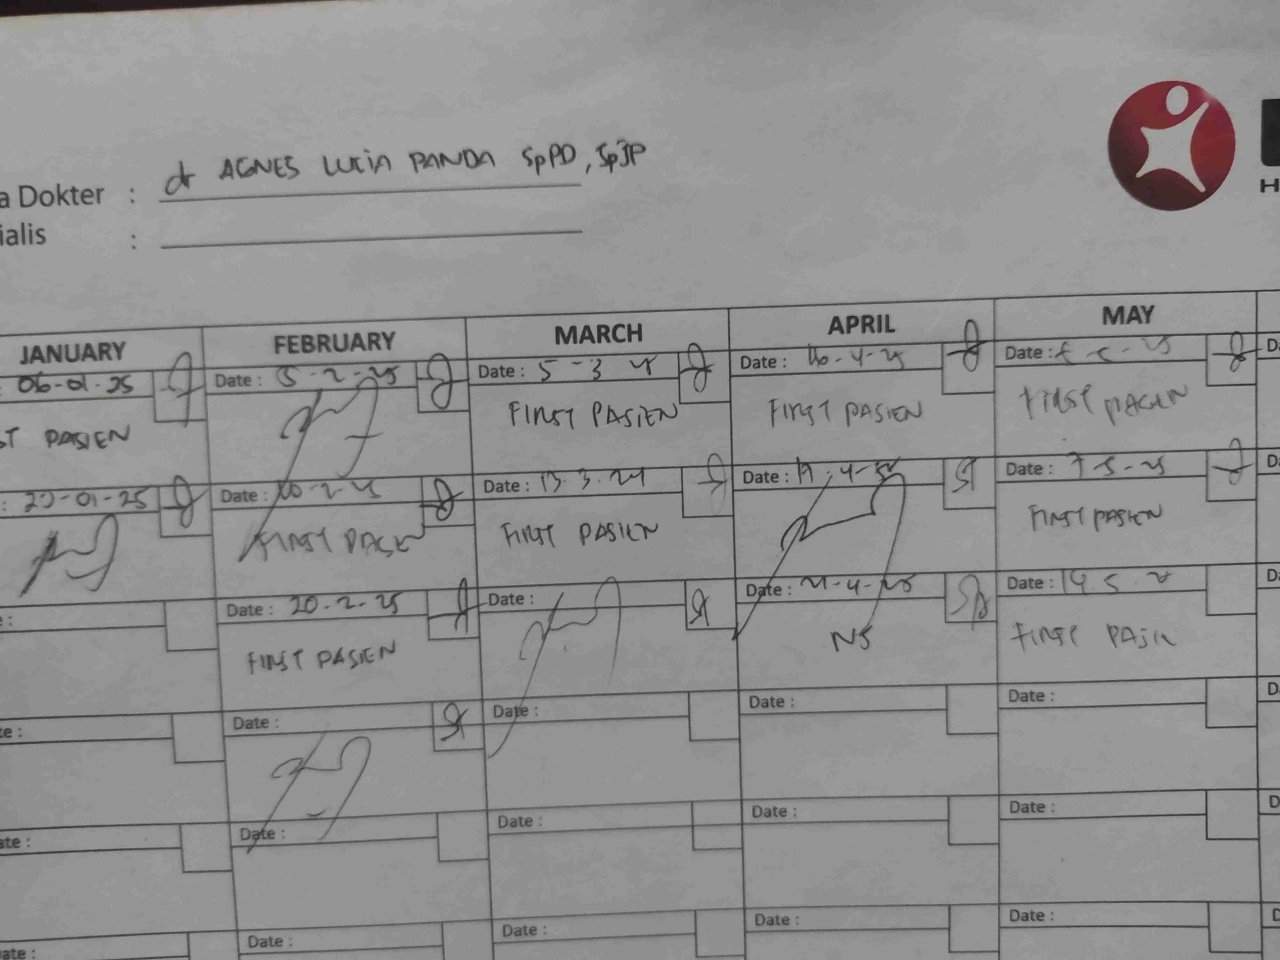 a Dokter : dr AGNES LUCIA PANDA SpPD, SpJP
ialis :
H
JANUARY FEBRUARY MARCH APRIL MAY
: 06-01-25 Date : 5-2-25 Date : 5-3 25 Date : 16-4-25 Date :
ST PASIEN FIRST PASIEN FIRST PASIEN FIRST PASIEN
: 20-01-25 Date : 10-2-25 Date : 13.3.24 Date : 19.4-25 Date : 7-5-25
FIRST PASIEN FIRST PASIEN FIRST PASIEN
e : Date : 20-2-25 Date : Date : 21-4-25 Date : 14.5
FIRST PASIEN NS FIRST
te : Date : Date : Date : Date :
ate : Date : Date : Date : Date :
ate : Date : Date : Date : Date :